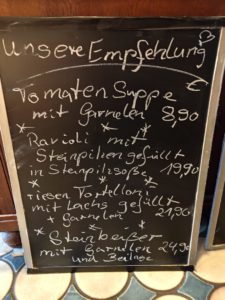 Unsere Empfehlung
€
Tomaten Suppe
mit Garnelen 8,90
* * *
Ravioli mit
Steinpilzen gefüllt
in Steinpilzsoße 19,90
*
riesen Tortelloni
* mit Lachs gefüllt
+ Garnelen 21,90
*
Steinbeißer
mit Garnelen 24,90
und Beilage